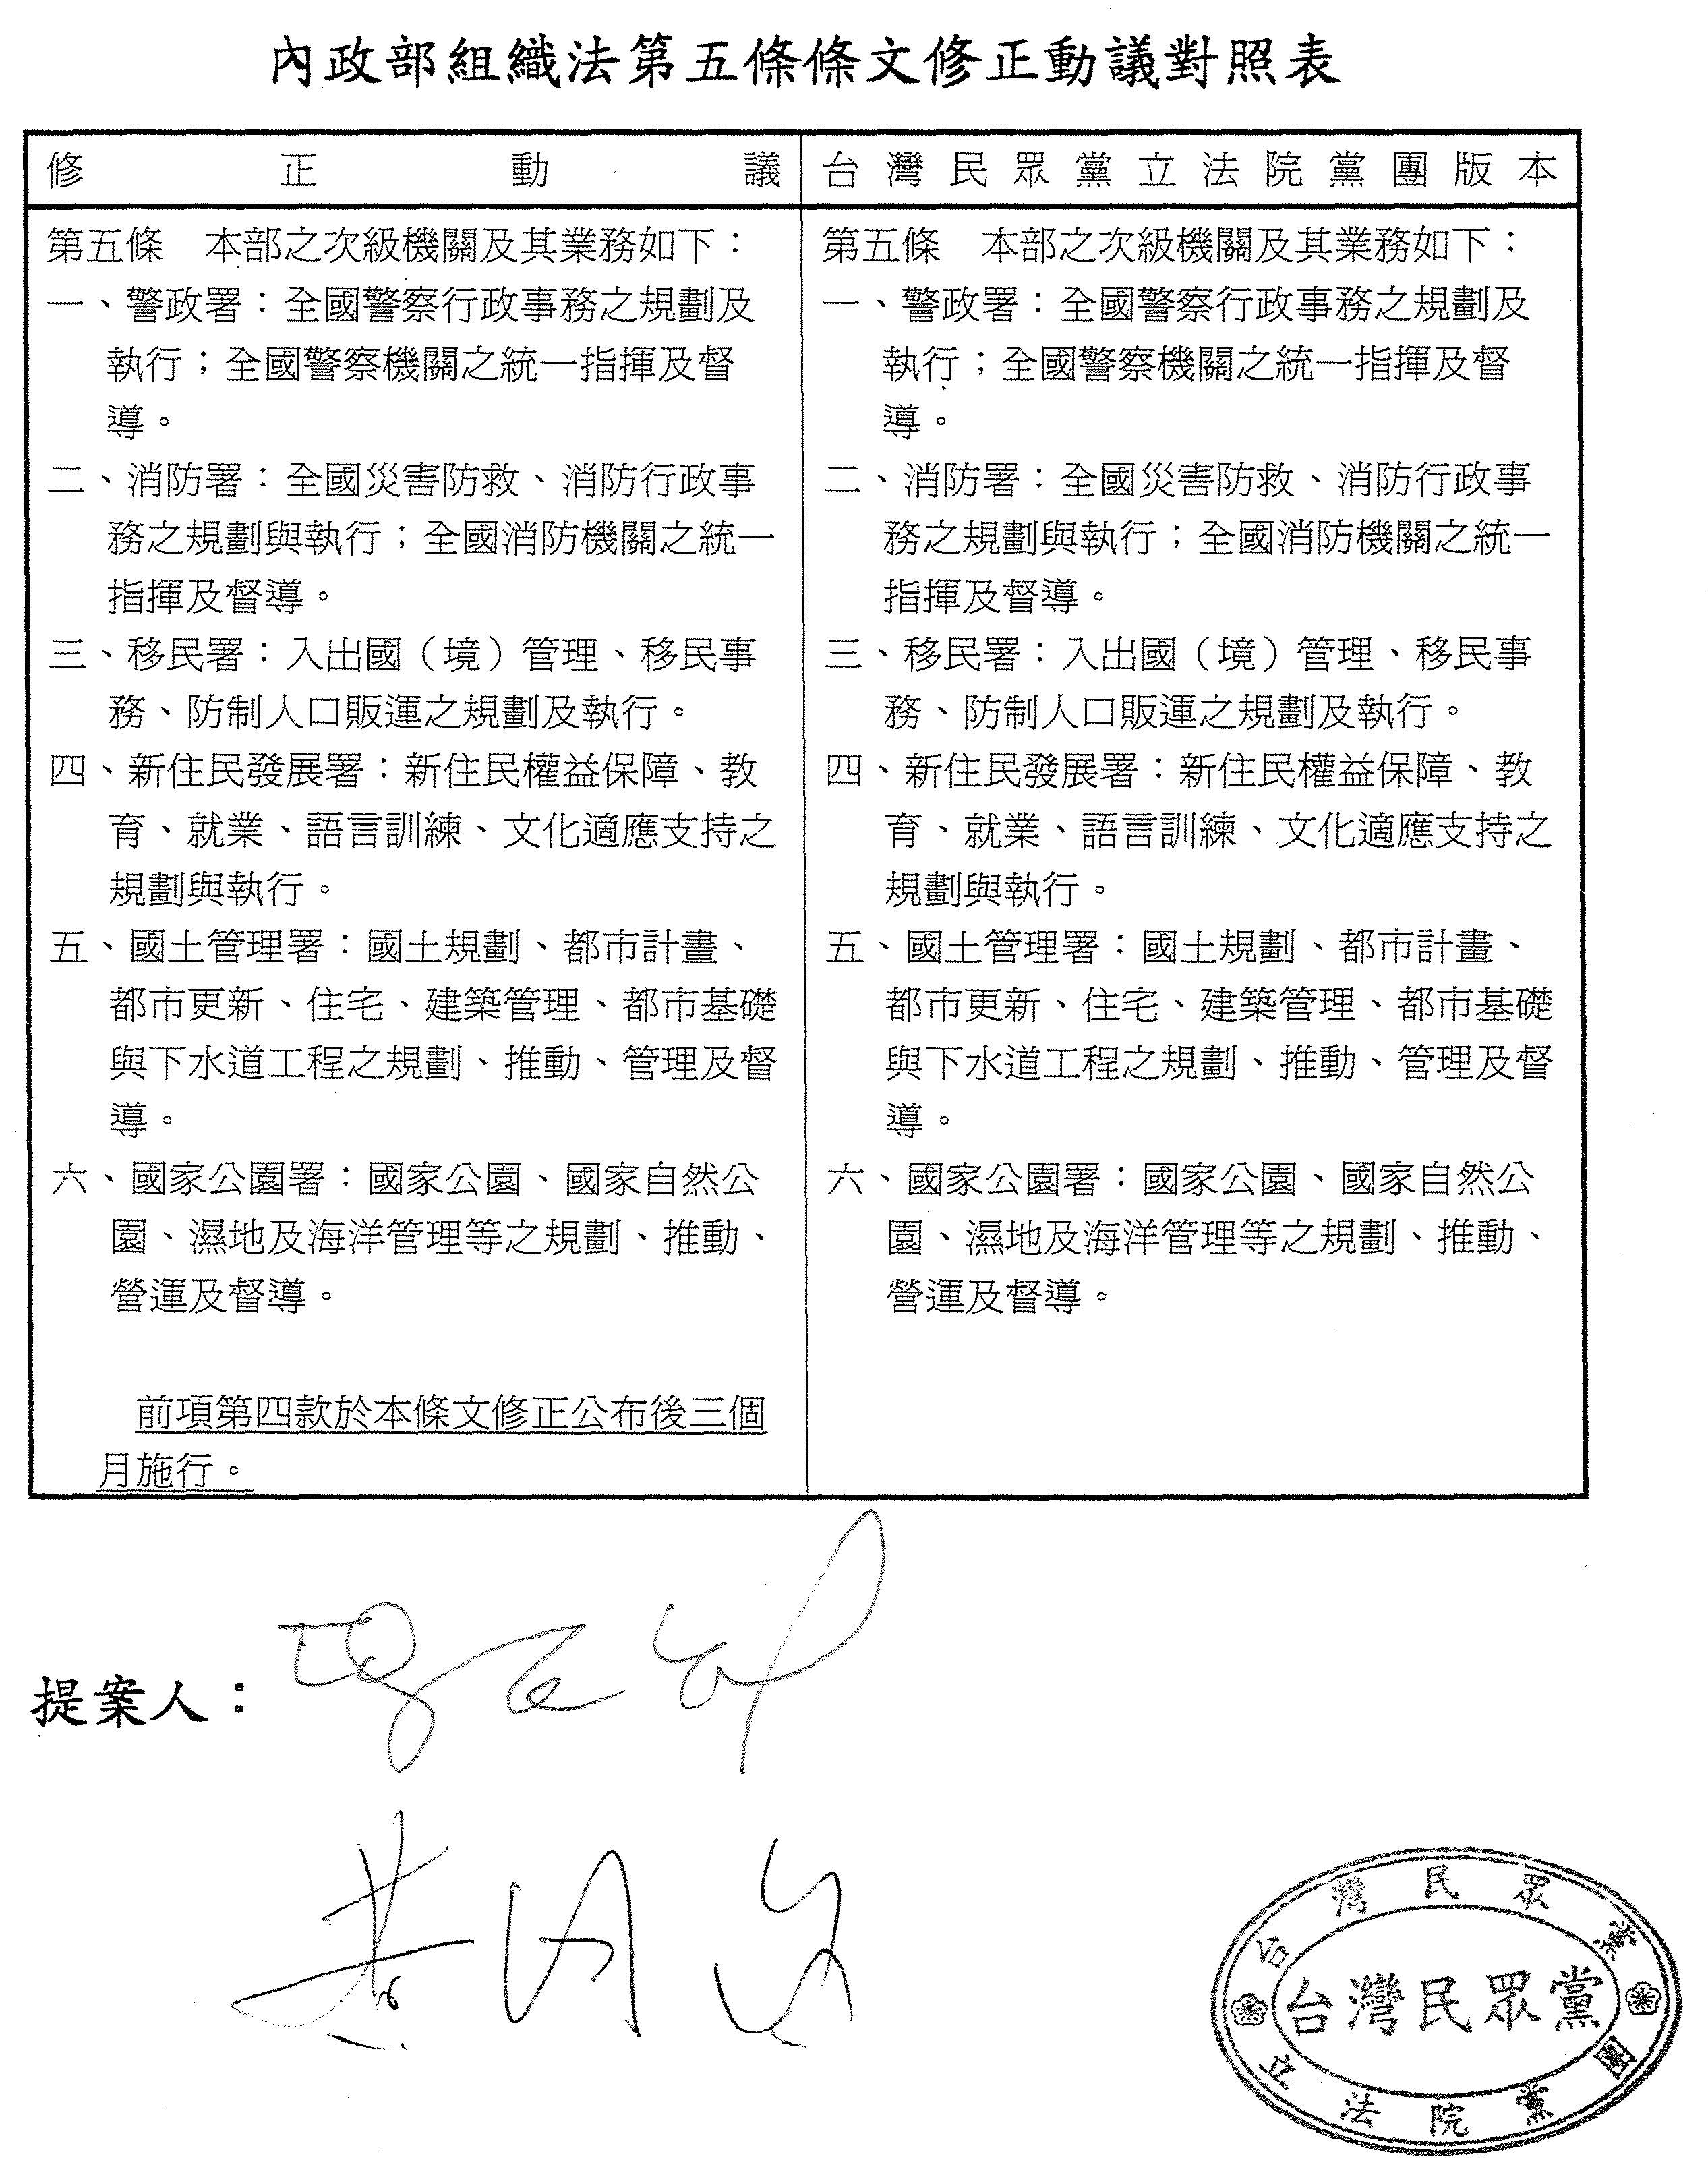 內政部組織法第五條條文修正動議對照表
修正動議
第五條　本部之次級機關及其業務如下：
一、警政署：全國警察行政事務之規劃及
執行；全國警察機關之統一指揮及督
導。
二、消防署：全國災害防救、消防行政事
務之規劃與執行；全國消防機關之統一
指揮及督導。
三、移民署：入出國（境）管理、移民事
務、防制人口販運之規劃及執行。
四、新住民發展署：新住民權益保障、教
育、就業、語言訓練、文化適應支持之
規劃與執行。
五、國土管理署：國土規劃、都市計畫、
都市更新、住宅、建築管理、都市基礎
與下水道工程之規劃、推動、管理及督
導。
六、國家公園署：國家公園、國家自然公
園、濕地及海洋管理等之規劃、推動、
營運及督導。
前項第四款於本條文修正公布後三個
月施行。
台灣民眾黨立法院黨團版本
第五條　本部之次級機關及其業務如下：
一、警政署：全國警察行政事務之規劃及
執行；全國警察機關之統一指揮及督
導。
二、消防署：全國災害防救、消防行政事
務之規劃與執行；全國消防機關之統一
指揮及督導。
三、移民署：入出國（境）管理、移民事
務、防制人口販運之規劃及執行。
四、新住民發展署：新住民權益保障、教
育、就業、語言訓練、文化適應支持之
規劃與執行。
五、國土管理署：國土規劃、都市計畫、
都市更新、住宅、建築管理、都市基礎
與下水道工程之規劃、推動、管理及督
導。
六、國家公園署：國家公園、國家自然公
園、濕地及海洋管理等之規劃、推動、
營運及督導。
提案人：
台灣民眾黨
立法院黨團
台灣民眾黨